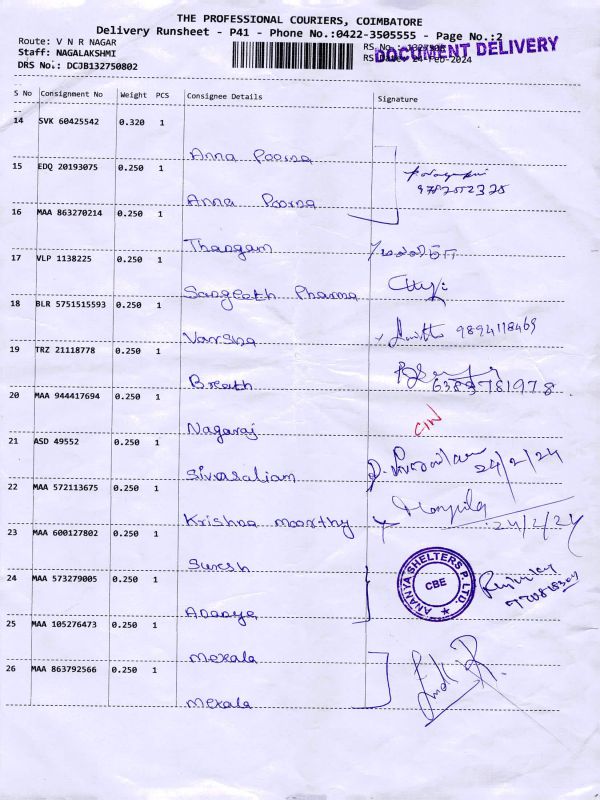 THE PROFESSIONAL COURIERS, COIMBATORE
Delivery Runsheet - P41 - Phone No.:0422-3505555 - Page No.:2
Route: V N R NAGAR
Staff: NAGALAKSHMI
DRS No.: DCJB132750802
RS No.
RS Date: 24-Feb-2024
DOCUMENT DELIVERY
S No Consignment No Weight PCS Consignee Details Signature
14 SVK 60425542 0.320 1
Anna Poorna
15 EDQ 20193075 0.250 1
Anna Poorna
16 MAA 863270214 0.250 1
Thangam
17 VLP 1138225 0.250 1
Sangeeth Pharma
18 BLR 5751515593 0.250 1
Varsha 9894118469
19 TRZ 21118778 0.250 1
Breath 6383781978
20 MAA 944417694 0.250 1
Nagaraj C/N
21 ASD 49552 0.250 1
Sivasaliam 24/2/24
22 MAA 572113675 0.250 1
Krishna moorthy Manjula 24/2/24
23 MAA 600127802 0.250 1
Suresh
24 MAA 573279005 0.250 1
Ananya
ANANYA SHELTERS P. LTD. CBE
25 MAA 105276473 0.250 1
Mekala
26 MAA 863792566 0.250 1
Mekala